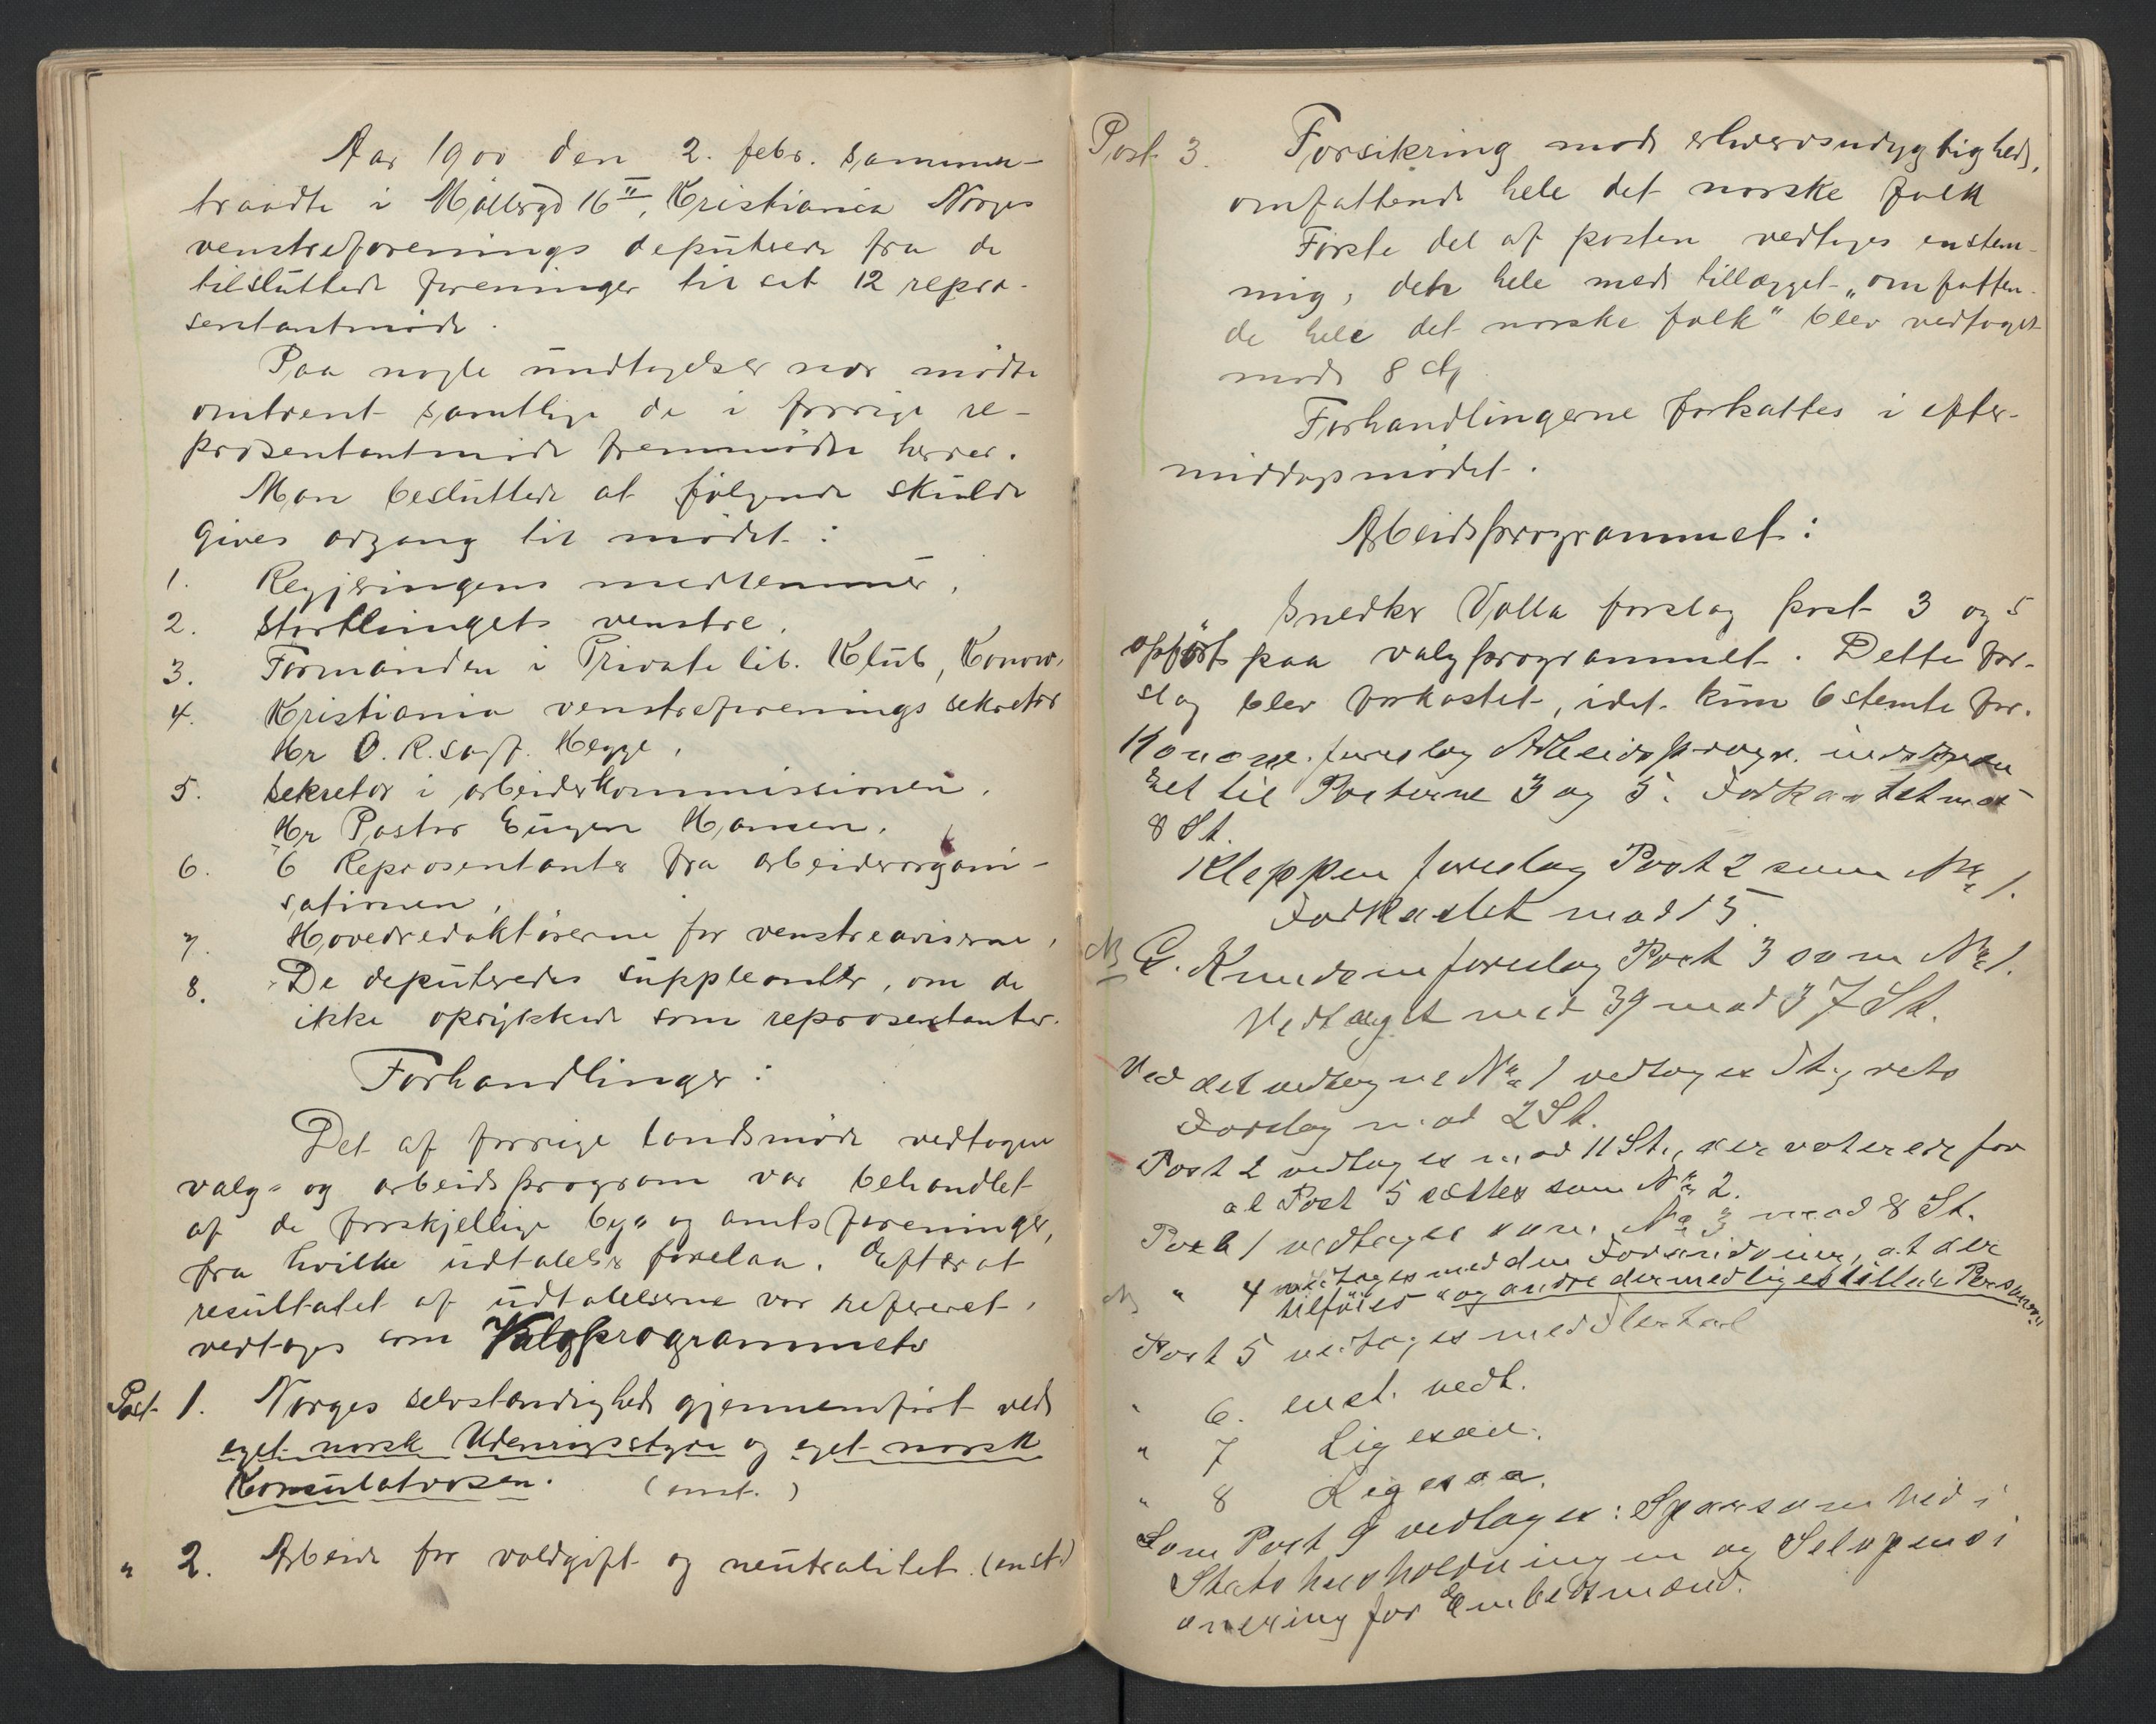 Aar 1900 den 2. febr. sammen-
traadte i Møllergd 16II, Kristiania Norges
venstreforenings deputerede fra de
tilsluttede foreninger til sit 12 repræ-
sentantmøde.
Paa nogle undtagelser nær mødte
omtrent samtlige de i forrige re-
præsentantmøde fremmødte herrer.
Man besluttede at følgende skulde
gives adgang til mødet:
1. Regjeringens medlemmer.
2. Storthingets venstre.
3. Formanden i Private lib. Klub, Konow.
4. Kristiania venstreforenings sekretær
Hr O. R. sagf. Hegge.
5. Sekretær i arbeiderkommissionen.
Hr Pastor Eugen Hansen.
6. 6 Repræsentanter fra arbeiderorgani-
sationen.
7. Hovedredaktørerne for venstreaviserne.
8. De deputeredes suppleanter, om de
ikke oprykkede som repræsentanter.
Forhandlinger:
Det af forrige landsmøde vedtagne
valg- og arbeidsprogram var behandlet
af de forskjellige by- og amtsforeninger,
fra hvilke udtalelser forelaa. Efterat
resultatet af udtalelserne var refereret,
vedtoges som Valgprogrammets
Post 1. Norges selvstændighed gjennemført ved
eget norsk Udenrigsstyre og eget norsk
Konsulatvæsen. (enst.)
" 2. Arbeide for voldgift og neutralitet. (enst.)
Post 3. Forsikring mod erhvervsudygtighed,
omfattende hele det norske folk
Første del af posten vedtoges enstem-
mig, det hele med tillægget "omfatten-
de hele det norske folk" blev vedtaget
mod 8 st
Forhandlingerne fortsattes i efter-
middagsmødet.
Arbeidsprogrammet:
Snedker Volla forslog post 3 og 5
opført paa valgprogrammet. Dette for-
slag blev forkastet, idet kun 6 stemte for.
Konow foreslog Arbeidsprogr. indskræn
ket til Posterne 3 og 5. Forkastet mod
8 St.
Kleppen foreslog Post 2 som No 1.
Forkastet mod 15.
G. Knudsen foreslog Post 3 som No 1.
Vedtaget med 39 mod 37 St.
Ved det vedtagne No 1 vedtoges Styrets
Forslag mod 2 St.
Post 2 vedtoges mod 11 St., der voterede for
at Post 5 sættes som No 2.
Post 1 vedtoges som No 3 mod 8 St.
" 4 vedtoges med den Forandring, at der
tilføies "og andre dermed ligestillede Personer"
Post 5 vedtoges med Flertal
" 6. enst. vedt.
" 7 Ligesaa.
" 8 Ligesaa.
Som Post 9 vedtoges: Sparsomhed i
Statshusholdningen og Selvpensi
onering for Embedsmænd.